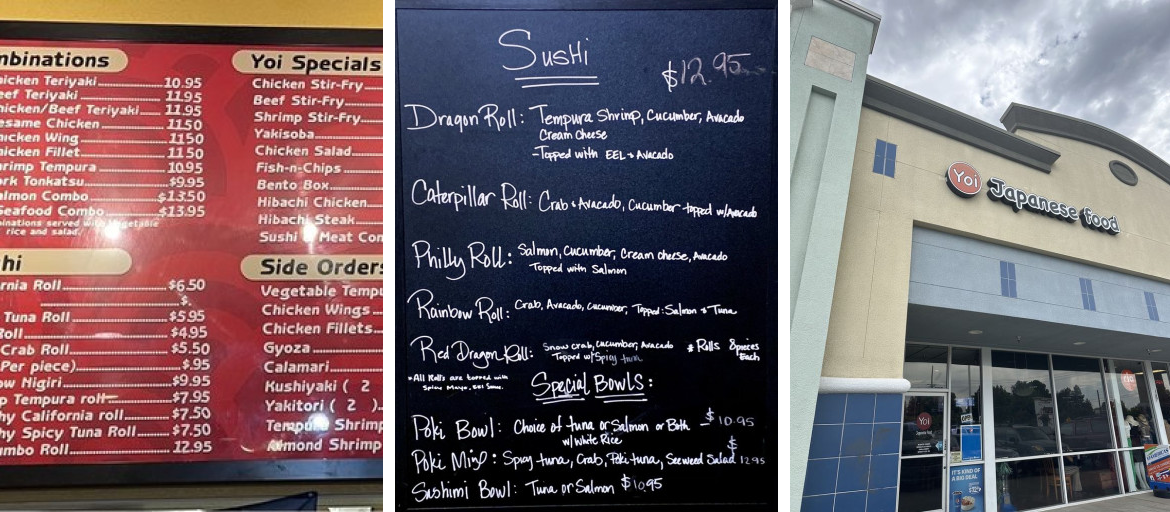 nbinations
hicken Teriyaki 10.95
eef Teriyaki 11.95
hicken/Beef Teriyaki 11.95
esame Chicken 11.50
hicken Wing 11.50
hicken Fillet 11.50
hrimp Tempura 10.95
ork Tonkatsu $9.95
almon Combo $13.50
Seafood Combo $13.95
binations served with vegetable
rice and salad.
hi
rnia Roll $6.50
$
Tuna Roll $5.95
Roll $4.95
Crab Roll $5.50
Per piece) $.95
ow Nigiri $9.95
p Tempura roll $7.95
hy California roll $7.50
hy Spicy Tuna Roll $7.50
umbo Roll 12.95
Yoi Specials
Chicken Stir-Fry
Beef Stir-Fry
Shrimp Stir-Fry
Yakisoba
Chicken Salad
Fish-n-Chips
Bento Box
Hibachi Chicken
Hibachi Steak
Sushi & Meat Com
Side Orders
Vegetable Tempu
Chicken Wings
Chicken Fillets
Gyoza
Calamari
Kushiyaki ( 2
Yakitori ( 2 )
Tempura Shrimp
Almond Shrimp
Sushi
$12.95
Dragon Roll: Tempura Shrimp, Cucumber, Avacado
Cream cheese
-Topped with EEL + Avacado
Caterpillar Roll: Crab + Avacado, Cucumber -topped w/Avacado
Philly Roll: Salmon, Cucumber, Cream cheese, Avacado
Topped with Salmon
Rainbow Roll: Crab, Avacado, Cucumber, Topped: Salmon + Tuna
Red Dragon Roll: Snow crab, Cucumber, Avacado
Topped w/ Spicy tuna
* Rolls 8pieces
Each
*All Rolls are topped with
Spicy Mayo, EEl Sauce.
Special Bowls:
Poki Bowl: Choice of tuna or Salmon or Both $10.95
w/ White Rice
Poki Mix: Spicy tuna, Crab, Poki tuna, Seeweed Salad $12.95
Sashimi Bowl: Tuna or Salmon $10.95
Yoi Japanese food
Yoi
IT'S KIND OF
A BIG DEAL